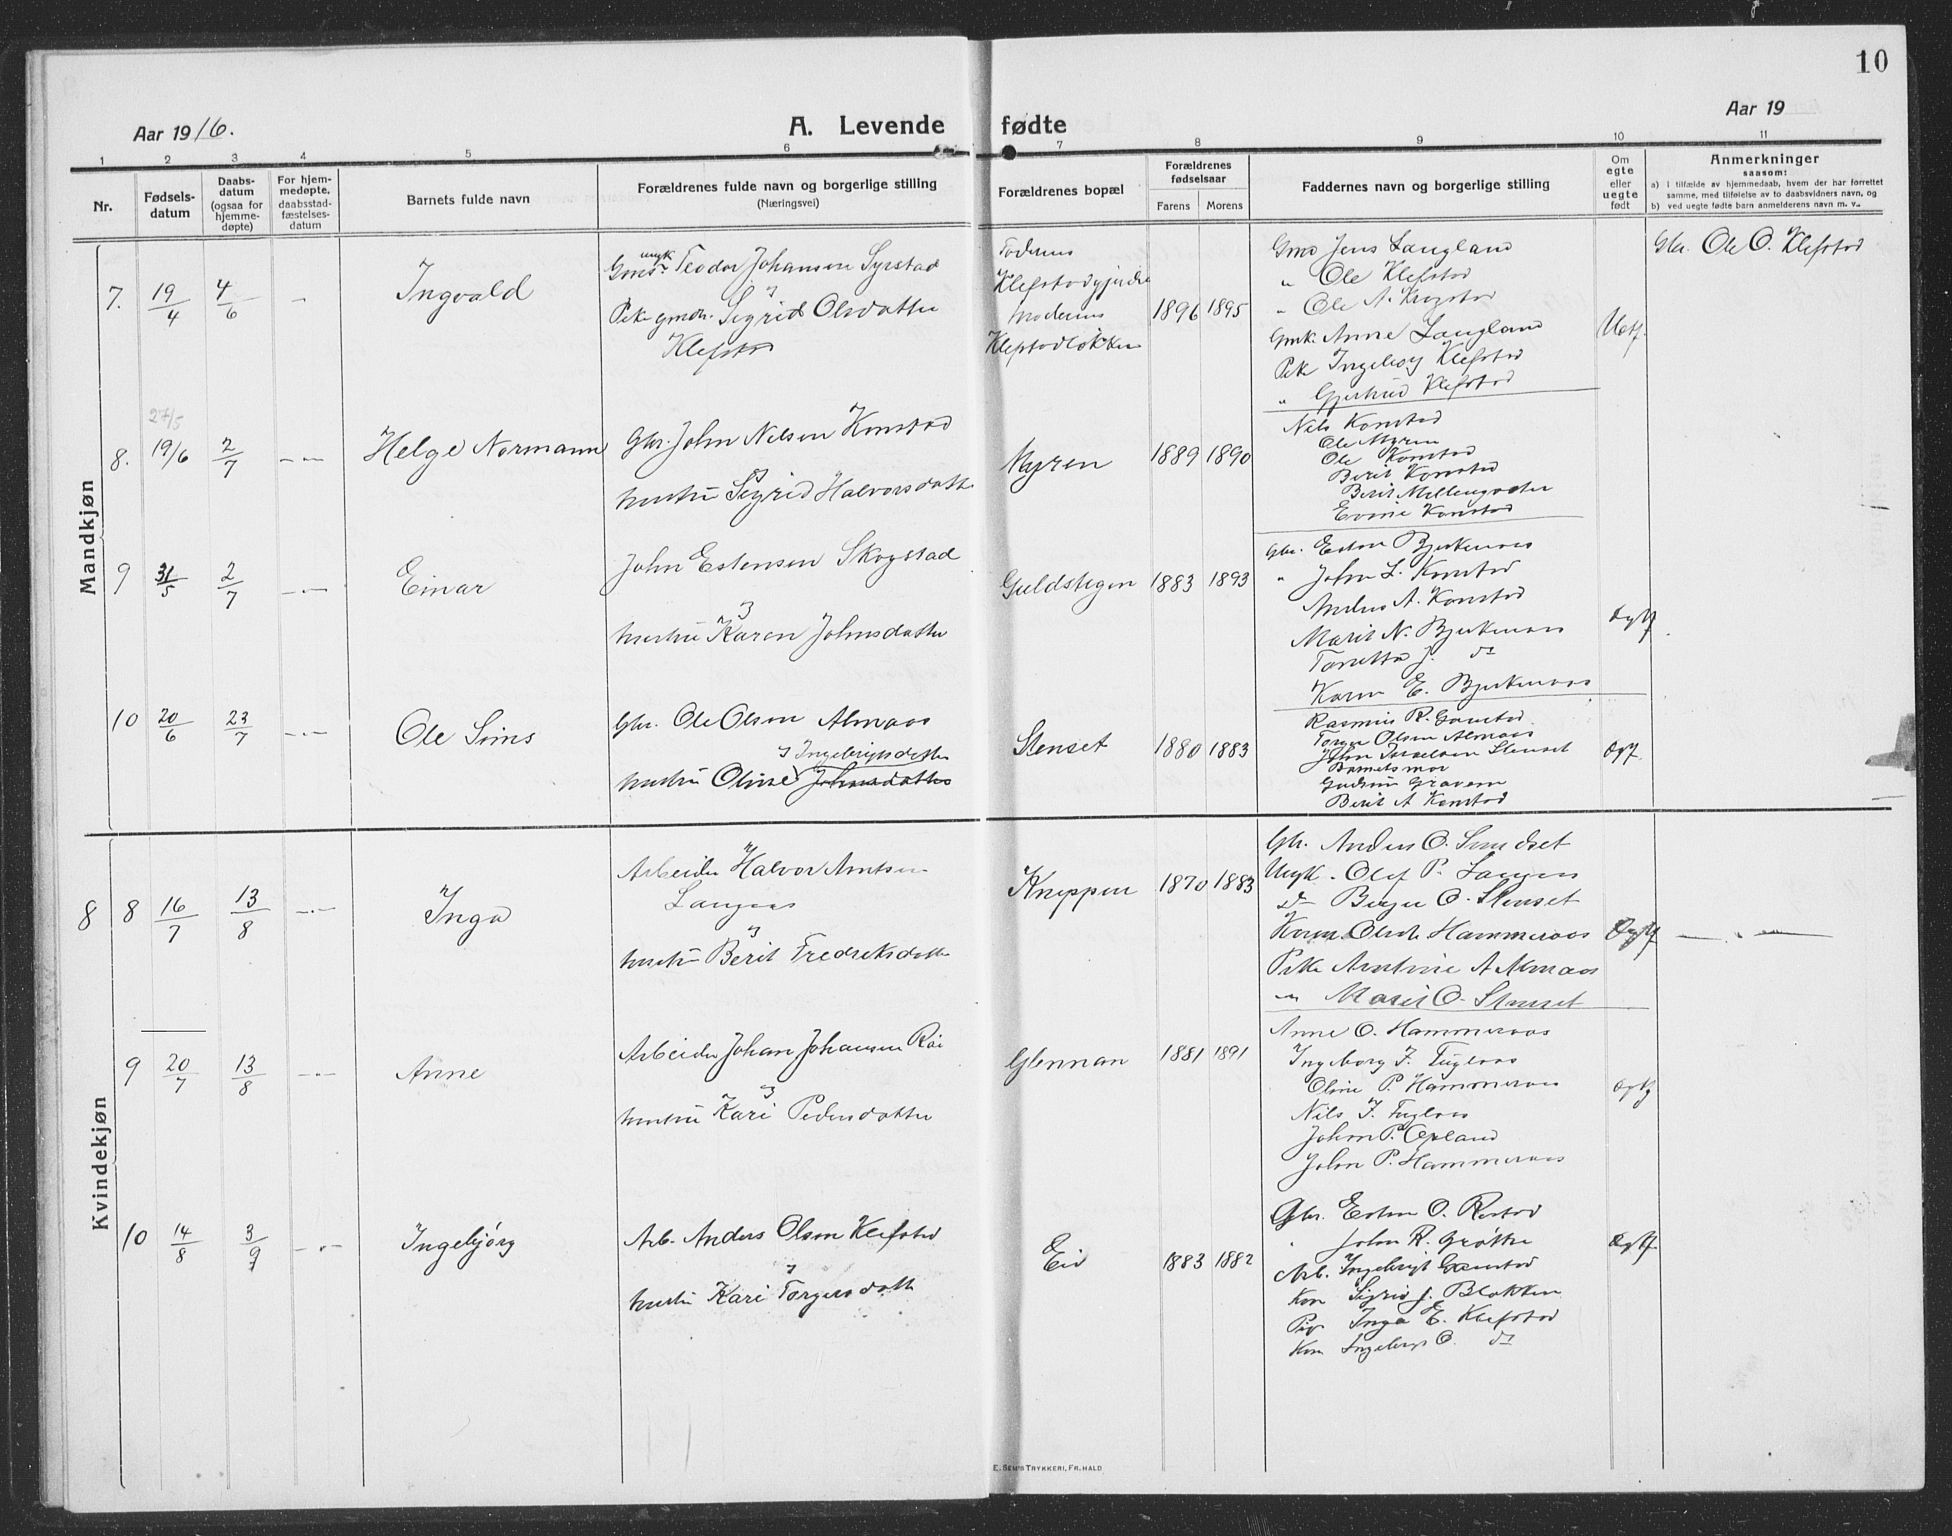 10
Aar 1916.
A. Levende fødte
Aar 19
1 2 3 4 5 6 7 8 9 10 11
Nr.
Fødsels-
datum
Daabs-
datum
(ogsaa for
hjemme-
døpte)
For hjem-
medøpte,
daabsstad-
fæstelses-
datum
Barnets fulde navn
Forældrenes fulde navn og borgerlige stilling
(Næringsvei)
Forældrenes bopæl
Forældrenes
fødselsaar
Farens Morens
Faddernes navn og borgerlige stilling
Om
egte
eller
uegte
født
Anmerkninger
saasom:
a) I tilfælde av hjemmedaab, hvem der har forrettet
samme, med tilføielse av to daabsvidners navn, og
b) ved uegte fødte barn anmelderens navn m. v.
Mandkjøn
7. 19/4 4/6 Ingvald
ungk
Gmds. Teodor Johansen Syrstad
Pike gmdr. Sigrid Olsdatter
Klefstad
Faderens
Moderens
1896 1895
Gmd Jens Langland
" Ole Klefstad
" Ole A. Krogstad
Gmk. Anne Langland
Pike Ingeborg Klefstad
" Gjertrud Klefstad
Uegt.
Gbr. Ole O. Klefstad
27/5
8. 19/6 2/7 Helge Normann
Gbr. John Nilsen Konstad
hustru Sigrid Halvorsdatter
Myren 1889 1890
Nils Konstad
Ole Myren
Ole Konstad
Berit Konstad
Berit
Konstad
9 31/5 2/7 Einar
John Estensen Skogstad
hustru Karen Johnsdatter
Guldstegen 1883 1893
Gbr. Esten Bjerkenaas
" John L. Konstad
Anders A. Konstad
Marit N. Bjerkenaas
J. do
Karen E. Bjerkenaas
Egtf
10 20/6 23/7 Ole Sims
Gbr. Ole Olsen Almaas
Ingebrigtsdatter
hustru Oline Johnsdatter
Stenset 1880 1883
Rasmus R. Gomstad
Torger Olsen Almaas
John Israelsen Stenset
Barnets mor
Gudrun Gravem
Berit A Konstad
Egtf.
Kvindekjøn
8 8 16/7 13/8 Inga
Arbeider Halvor Arntsen
Langaas
hustru Berit Fredriksdatter
Kneppen 1870 1883
Gbr. Anders O. Sundset
Ungk. Olaf P. Langaas
do Birger O. Stenset
Karen Olsdr Hammeraas
Pike Arntine A Almaas
" Marit O. Stenset
Egtf
9 20/7 13/8 Anne
Arbeider Johan Johansen Röe
hustru Kari Pedersdatter
Glennan 1881 1891
Anne O. Hammeraas
Ingeborg J. Fuglaas
Oline P. Hammeraas
Nils J. Fuglaas
John P. Opland
John P. Hammeraas
Egtf
10 14/8 3/9 Ingebjørg
Arb. Anders Olsen Klefstad
hustru Kari Torgersdatter
Eid 1883 1882
Gbr. Esten O. Rostad
" John R. Grøtte
Arb. Ingebrigt Gamstad
Kone Sigrid J. Blokken
Pige Inga E. Klefstad
Kone Ingeborg O. do
Egtf.
E. SEM'S TRYKKERI, FR. HALD